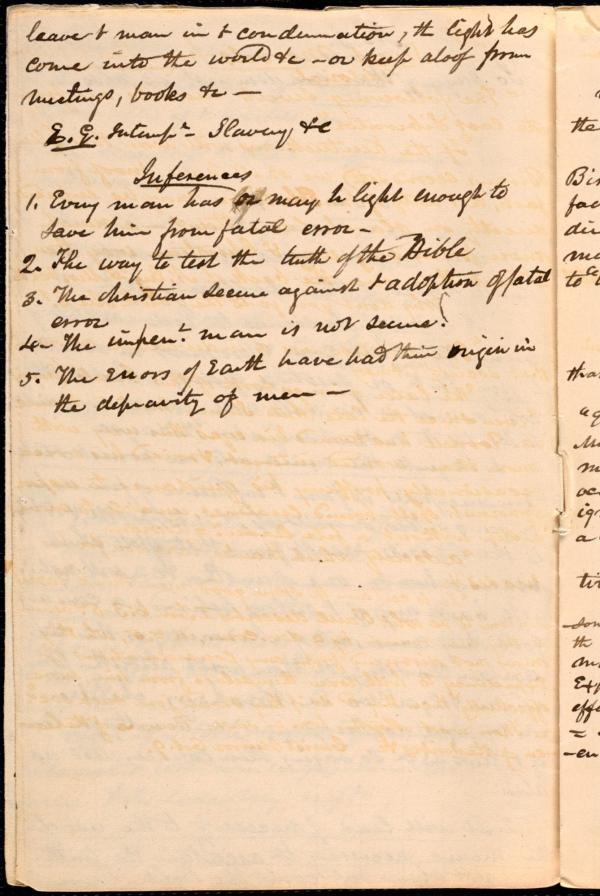 leave t man in t condemnation, th light has
come into the world &c - or keep aloof from
meetings, books &c —
E. G. Intemp^r- Slavery, &c
Inferences
1. Every man has or may h light enough to
save him from fatal error -
2. The way to test the truth of the Bible
3. The christian secure against t adoption of fatal
error
4. The impen^t. man is not secure!
5. The errors of Earth have had their origin in
the depravity of men —
the
Bi
fac
di
ma
to
tha
a
a
th
effe